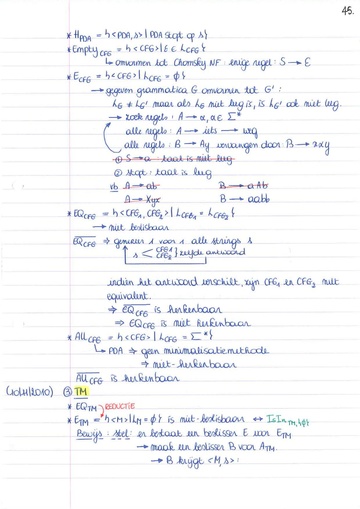 45.
* H_PDA = {<PDA,s> | PDA stopt op s}
* Empty_CFG = {<CFG> | ε ∈ L_CFG}
↳ omvormen tot Chomsky NF: enige regel: S → ε
* E_CFG = {<CFG> | L_CFG = ϕ}
→ gegeven grammatica G omvormen tot G':
L_G ≠ L_G' maar als L_G niet leeg is, is L_G' ook niet leeg.
→ zoek regels: A → α, α ∈ Σ*
alle regels: A → iets → weg
alle regels: B → Ay vervangen door: B → αy
① S → a : taal is niet leeg
② stopt: taal is leeg
vb A → ab B → aAb
A → Xyx B → aabb
* EQ_CFG = {<CFG₁, CFG₂> | L_CFG₁ = L_CFG₂}
→ niet beslisbaar
EQ_CFG ⇒ genereer 1 voor 1 alle strings s
s < CFG₁ CFG₂ } zelfde antwoord
indien het antwoord verschilt, zijn CFG₁ en CFG₂ niet
equivalent.
⇒ EQ_CFG is herkenbaar
⇒ EQ_CFG is niet herkenbaar
* ALL_CFG = {<CFG> | L_CFG = Σ*}
↳ PDA ⇒ geen minimalisatiemethode
⇒ niet-herkenbaar
ALL_CFG is herkenbaar
③ TM
* EQ_TM REDUCTIE
* E_TM = {<M> | L_M = ϕ} is niet-beslisbaar ↔ IsIn_TM,{ϕ}
Bewijs: stel: er bestaat een beslisser E voor E_TM
→ maak een beslisser B voor A_TM.
→ B krijgt <M,s>: